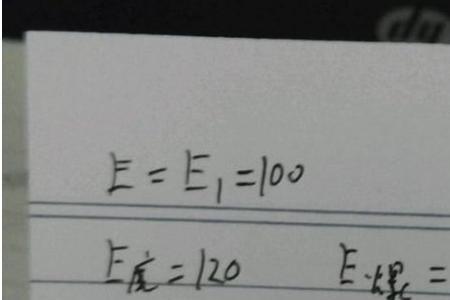 E = E₁ = 100
E = 120 E =